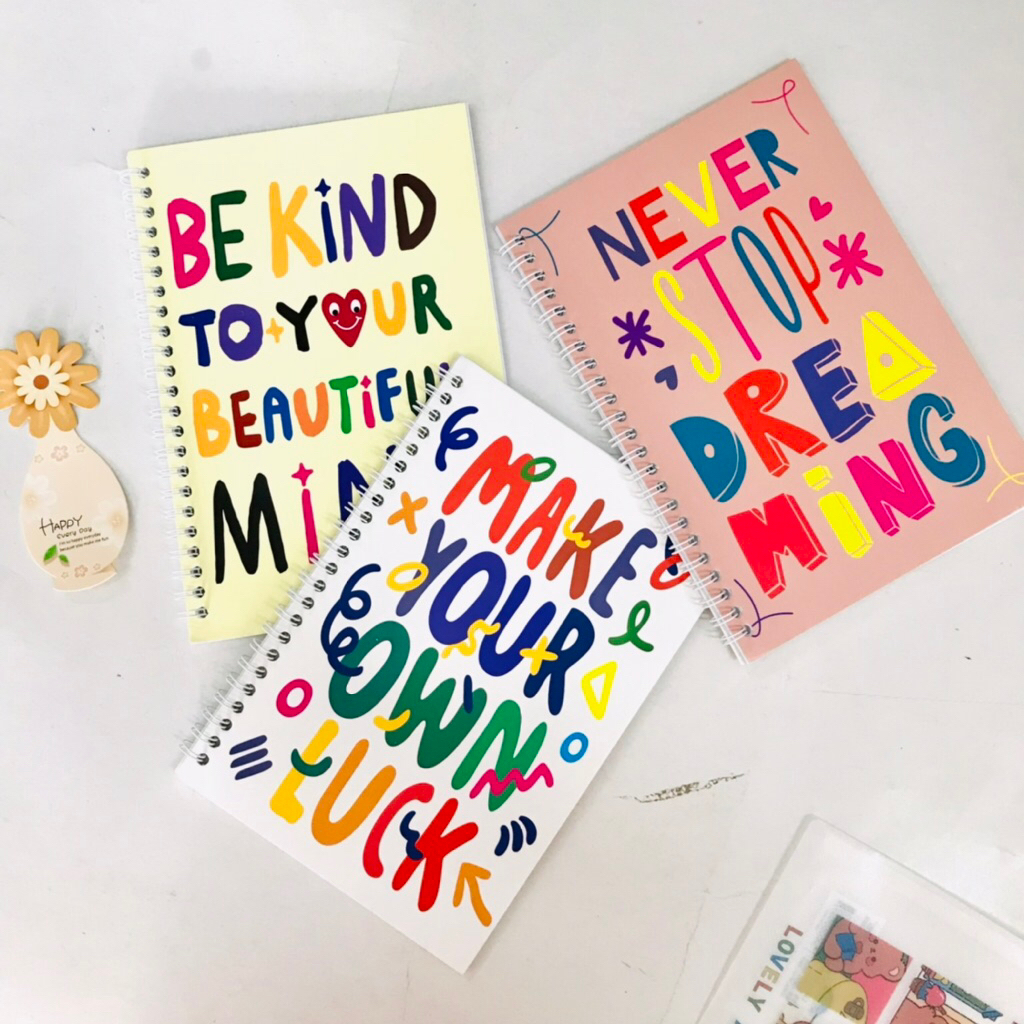 BE KiND
TO YOUR
BEAUTiFU
MiN
NEVER
STOP
DREA
MiNG
MAKE
YOUR
OWN
LUCK
HAPPY
Every Day
LOVELY